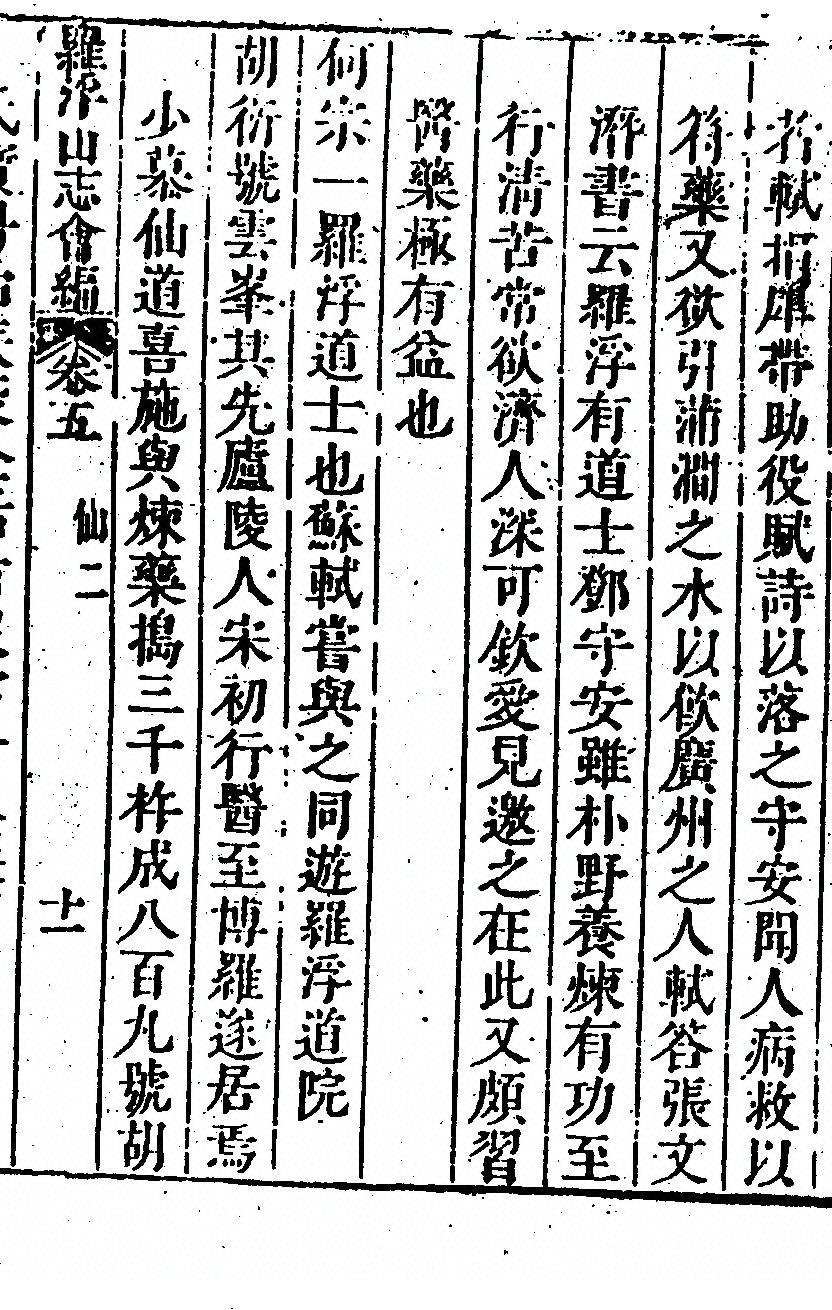 若軾捐犀帶助役賦詩以落之守安聞人病救以
符藥又欲引蒲澗之水以飲廣州之人軾答張文
潛書云羅浮有道士鄧守安雖朴野養煉有功至
行清苦常欲濟人深可欽愛見邀之在此又頗習
醫藥極有益也
何宗一羅浮道士也蘇軾嘗與之同遊羅浮道院
胡衍號雲峯其先廬陵人宋初行醫至博羅遂居焉
少慕仙道喜施與煉藥搗三千杵成八百丸號胡
羅浮山志會編 卷五 仙二 十一